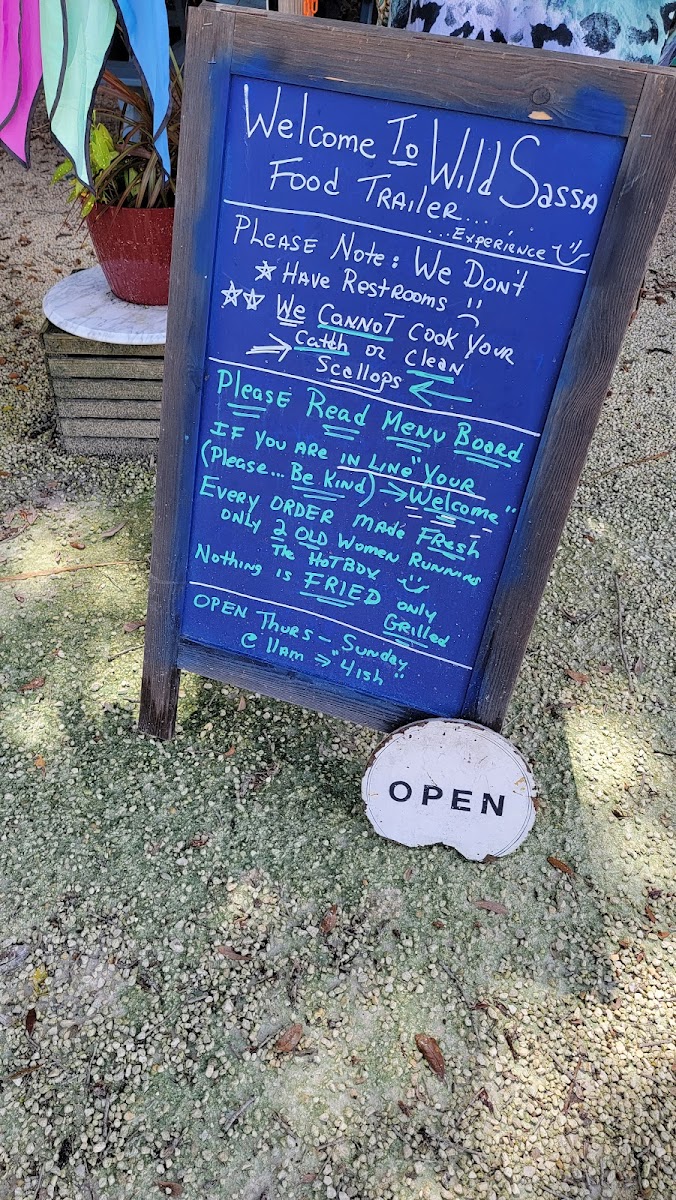 Welcome To Wild Sassa
Food Trailer...
...Experience
Please Note: We Don't
☆ Have Restrooms
☆☆ We Cannot Cook Your
→ Catch or Clean
Scallops ←
Please Read Menu Board
If you are in line "Your
(Please... Be Kind) → Welcome"
Every order made Fresh
only 2 old women Running
The HotBox
Nothing is FRIED only
Grilled
OPEN Thurs - Sunday
@ 11am ⇒ "4ish"
OPEN